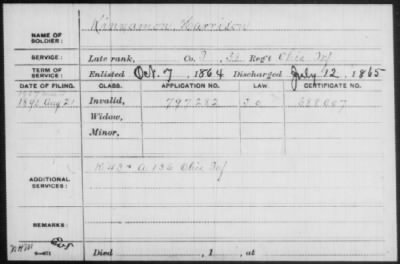 Kinnamon, Harrison
NAME OF
SOLDIER:
SERVICE:
Late rank, Co. Reg't Ohio Inf
TERM OF
SERVICE:
Enlisted Oct. 7, 1864 Discharged July 12, 1865
DATE OF FILING. CLASS. APPLICATION NO. LAW. CERTIFICATE NO.
1890 Aug 21 Invalid, 797282
Widow,
Minor,
ADDITIONAL
SERVICES:
A 136 Ohio Inf
REMARKS:
Died , 1 , at